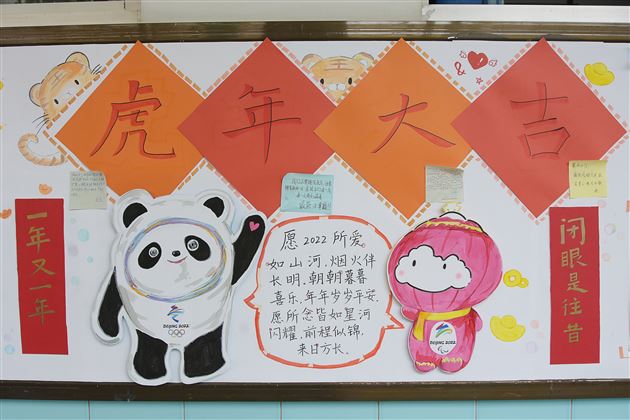 虎年大吉
一年又一年
愿2022所爱
如山河,烟火伴
长明,朝朝暮暮
喜乐,年年岁岁平安,
愿所念皆如星河
闪耀,前程似锦,
来日方长.
闭眼是往昔
BEIJING 2022
BEIJING 2022